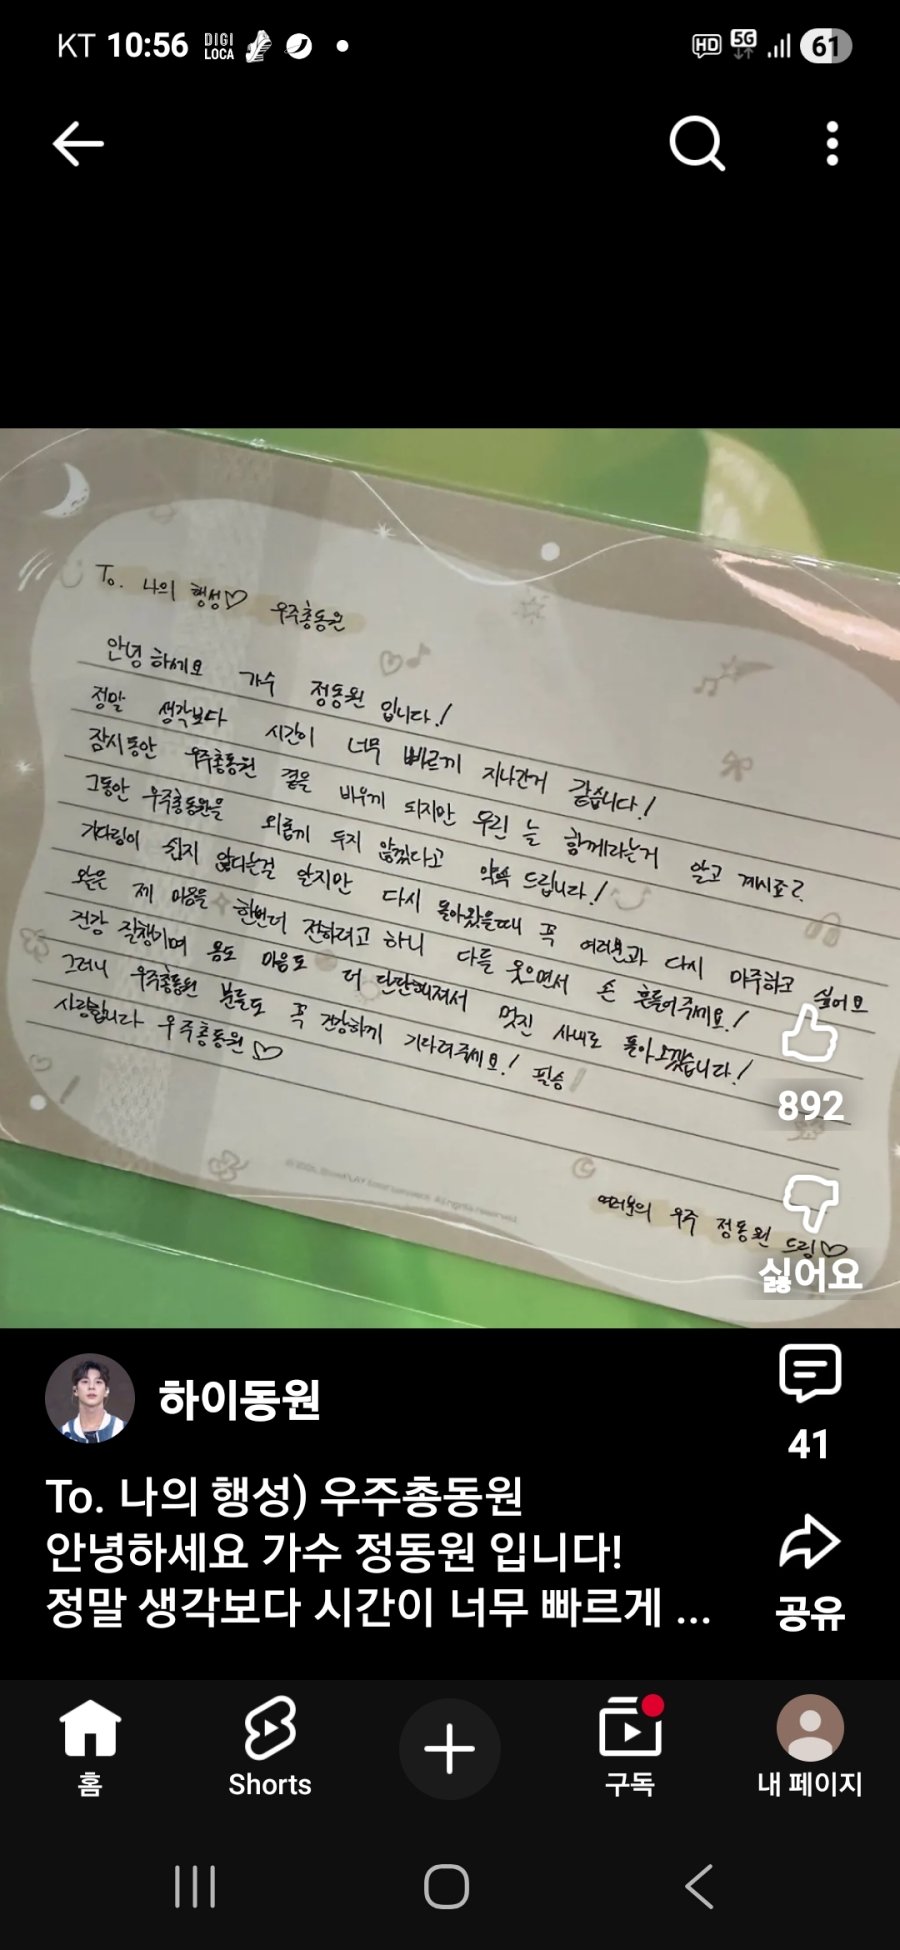 KT 10:56 DIGI LOCA HD 5G 61
To. 나의 행성♡ 우주총동원
안녕하세요 가수 정동원 입니다!
정말 생각보다 시간이 너무 빠르게 지나간거 같습니다!
잠시동안 우주총동원 곁을 비우게 되지만 우린 늘 함께라는거 알고 계시죠?
그동안 우주총동원을 외롭게 두지 않겠다고 약속 드립니다!
기다림이 쉽지 않다는걸 알지만 다시 돌아왔을때 꼭 여러분과 다시 마주하고 싶어요
오늘은 제 마음을 한번더 전하려고 하니 다들 웃으면서 손 흔들어주세요!
건강 잘챙기며 몸도 마음도 더 단단해져서 멋진 사내로 돌아오겠습니다!
그러니 우주총동원 분들도 꼭 건강하게 기다려주세요! 필승
사랑합니다 우주총동원♡
여러분의 우주 정동원 드림♡
892
싫어요
하이동원
41
To. 나의 행성) 우주총동원
안녕하세요 가수 정동원 입니다!
정말 생각보다 시간이 너무 빠르게 ...
공유
홈 Shorts 구독 내 페이지